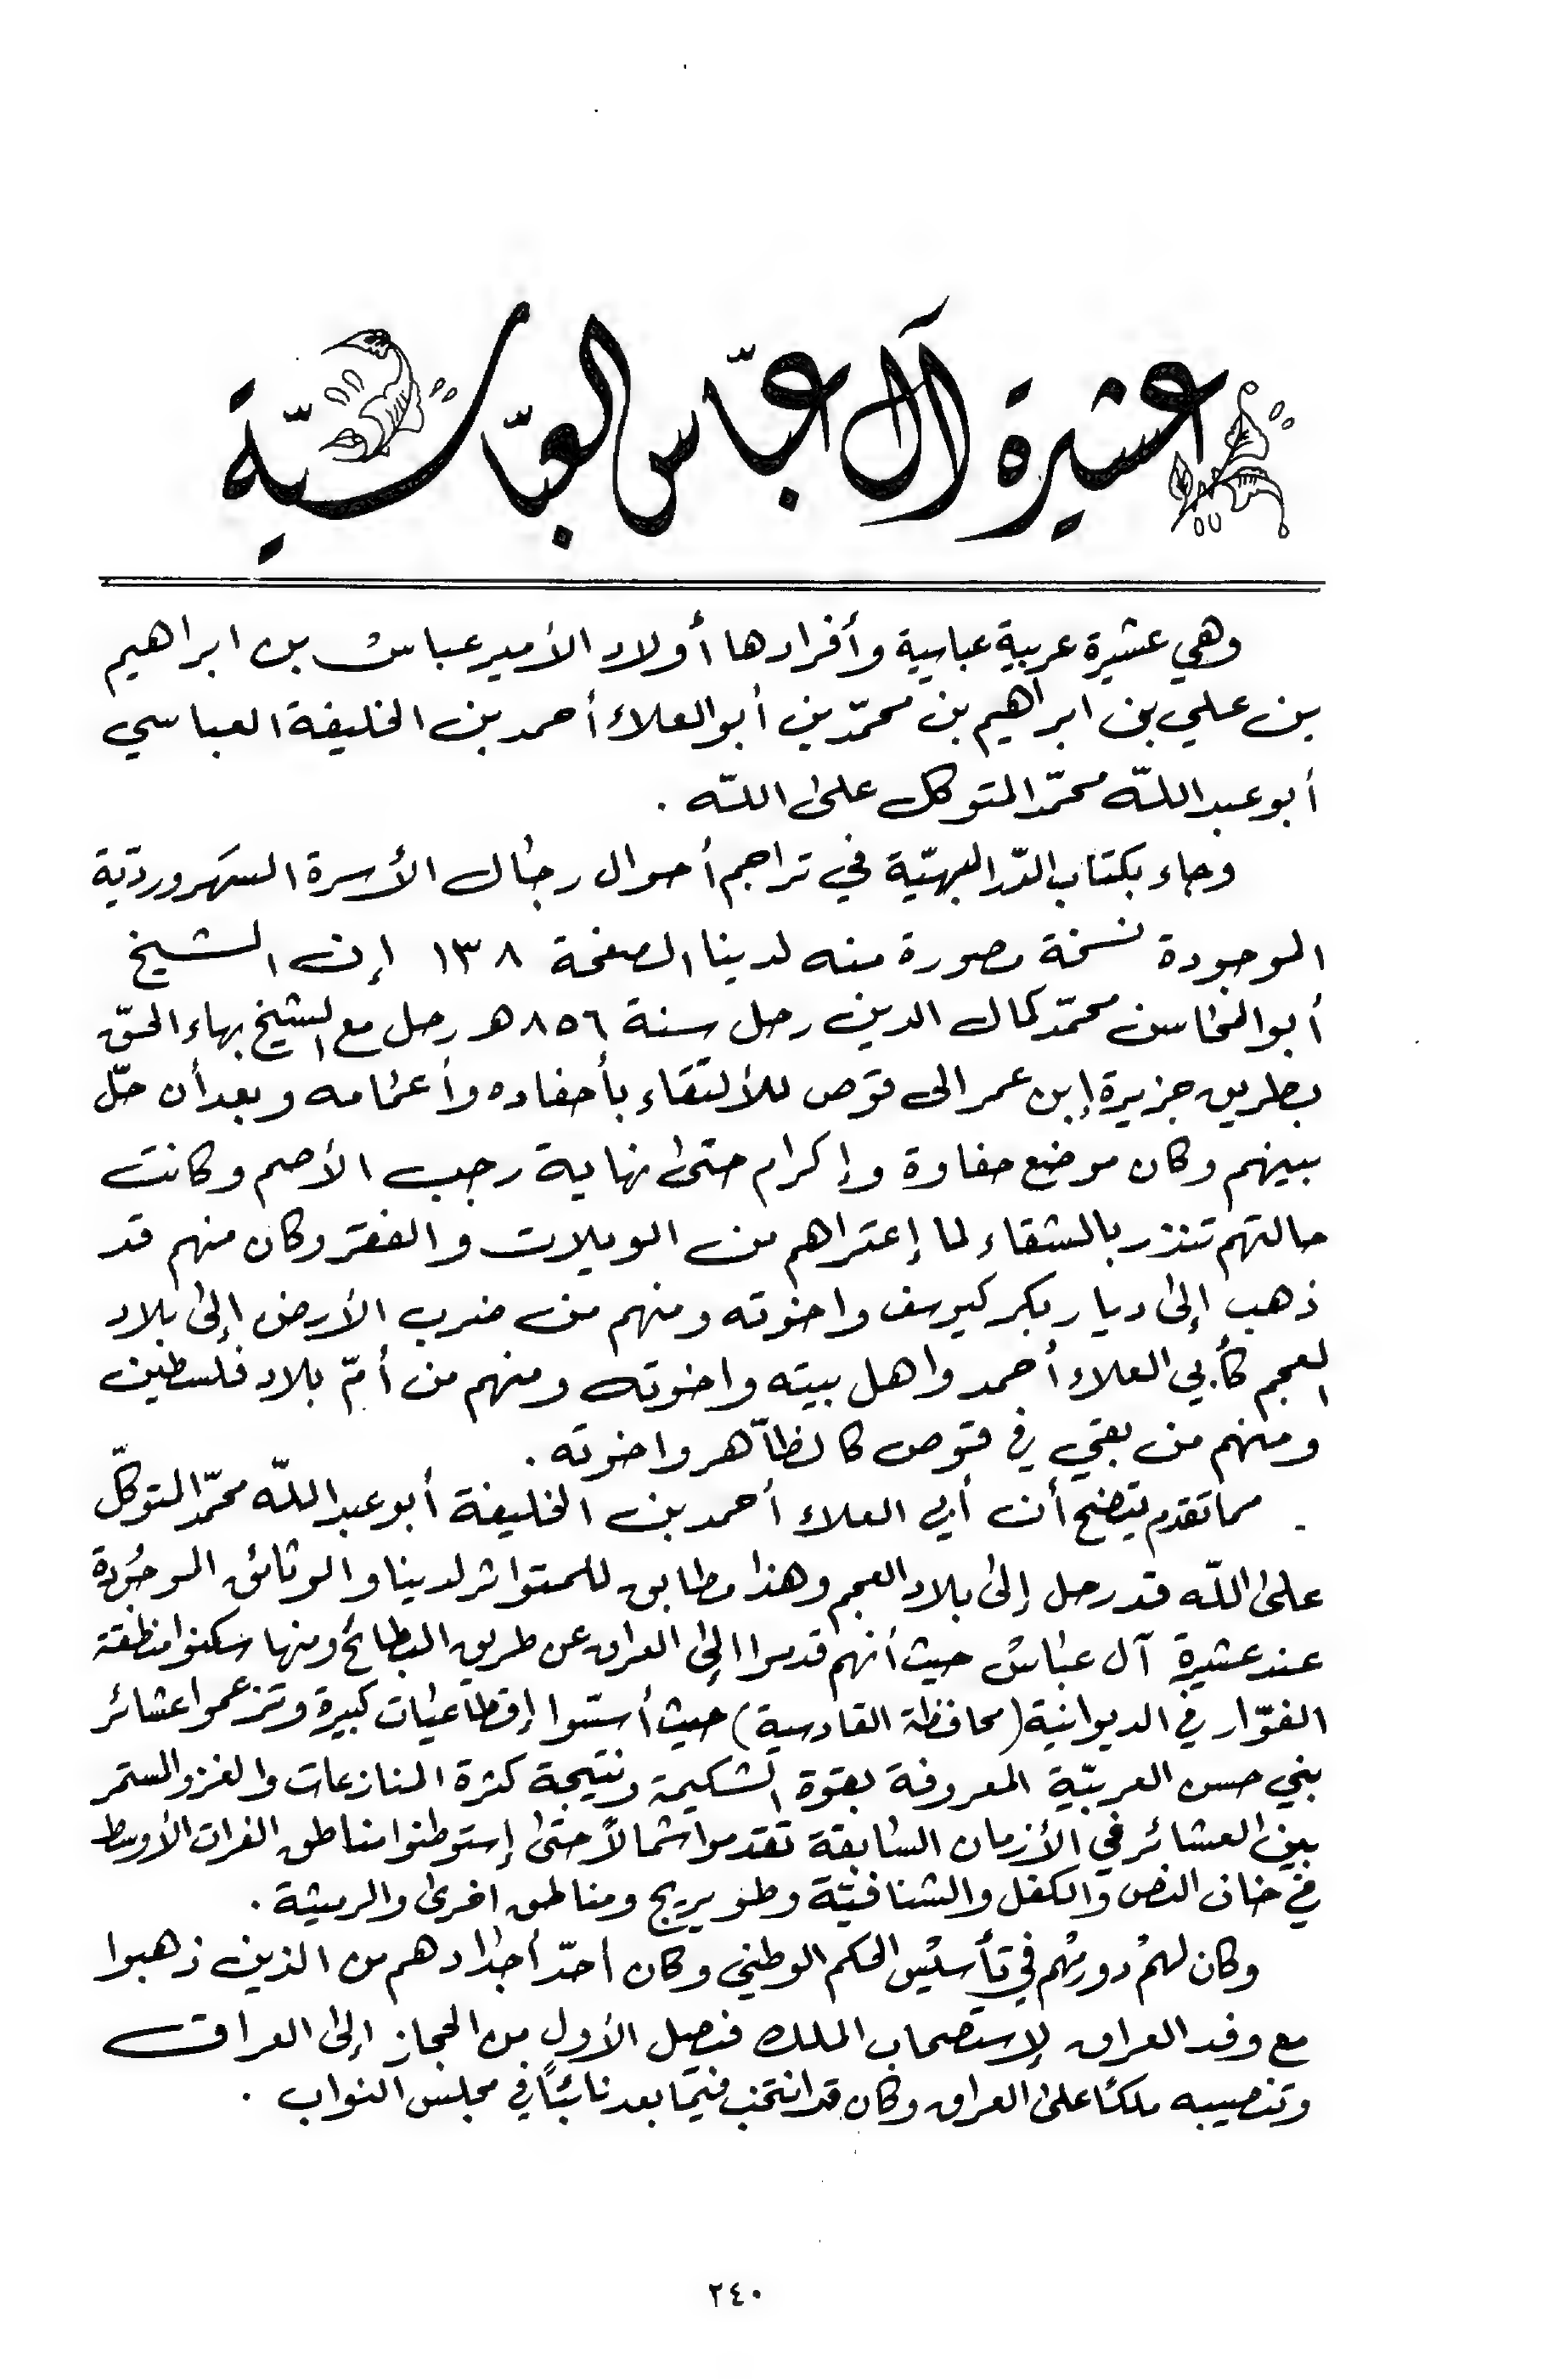 عشيرة آل عبّاس العبّاسيّة
وهي عشيرة عربية عباسية وأفرادها أولاد الأمير عباس بن ابراهيم
بن علي بن ابراهيم بن محمّد بن أبو العلاء أحمد بن الخليفة العباسي
أبو عبد اللّه محمّد المتوكل على اللّه .
وجاء بكتاب الدّر البهيّة في تراجم أحوال رجال الأسرة السهرورديّة
الموجودة نسخة مصورة منه لدينا الصفحة ١٣٨ إن الشيخ
أبو المحاسن محمّد كمال الدين رحل سنة ٨٥٦ هـ رحل مع الشيخ بهاء الحقّ
بطريق جزيرة إبن عمر الى قوص للألتقاء بأحفاده وأعمامه وبعد أن حلّ
بينهم وكان موضع حفاوة وإكرام حتى نهاية رجب الأصم وكانت
حالتهم تنذر بالشقاء لما إعتراهم من الويلات والفقر وكان منهم قد
ذهب إلى ديار بكر كيوسف واخوته ومنهم من ضرب الأرض إلى بلاد
العجم كأبي العلاء أحمد واهل بيته واخوته ومنهم من أمّ بلاد فلسطين
ومنهم من بقي في قوص كالظاهر واخوته .
مما تقدم يتضح أن أبي العلاء أحمد بن الخليفة أبو عبد اللّه محمّد المتوكّل
على اللّه قد رحل إلى بلاد العجم وهذا مطابق للمتواتر لدينا والوثائق الموجُودة
عند عشيرة آل عباس حيث أنهم قدموا إلى العراق عن طريق البطائح ومنها سكنوا منطقة
الفوّار في الديوانية (محافظة القادسية) حيث أسسّوا إقطاعيات كبيرة وتزعموا عشائر
بني حسن العربيّة المعروفة بقوة الشكيمة ونتيجة كثرة المنازعات والغزو المستمر
بين العشائر في الأزمان السابقة تقدموا شمالاً حتى إستوطنوا مناطق الفرات الأوسط
في خان النص والكفل والشنافيّة وطويريج ومناطق اخرى والرميثة .
وكان لهم دور مهم في تأسيس الحكم الوطني وكان احدّ أجدادهم من الذين ذهبوا
مع وفد العراق لإستصحاب الملك فيصل الأول من الحجاز إلى العراق
وتنصيبه ملكاً على العراق وكان قد انتخب فيما بعد نائباً في مجلس النواب .
٢٤٠